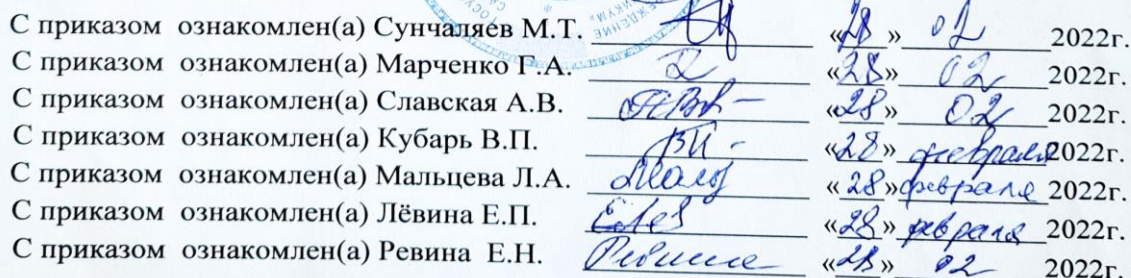 С приказом ознакомлен(а) Сунчаляев М.Т. «28» 02 2022г.
С приказом ознакомлен(а) Марченко Г.А. «28» 02 2022г.
С приказом ознакомлен(а) Славская А.В. «28» 02 2022г.
С приказом ознакомлен(а) Кубарь В.П. «28» февраля 2022г.
С приказом ознакомлен(а) Мальцева Л.А. «28» февраля 2022г.
С приказом ознакомлен(а) Лёвина Е.П. «28» февраля 2022г.
С приказом ознакомлен(а) Ревина Е.Н. «28» 02 2022г.